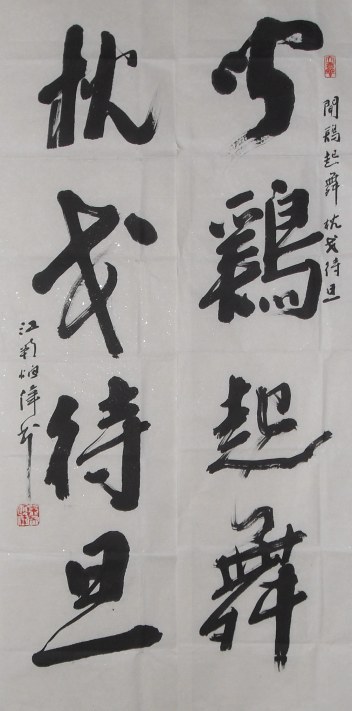 聞鷄起舞 枕戈待旦
聞鷄起舞
枕戈待旦
江南